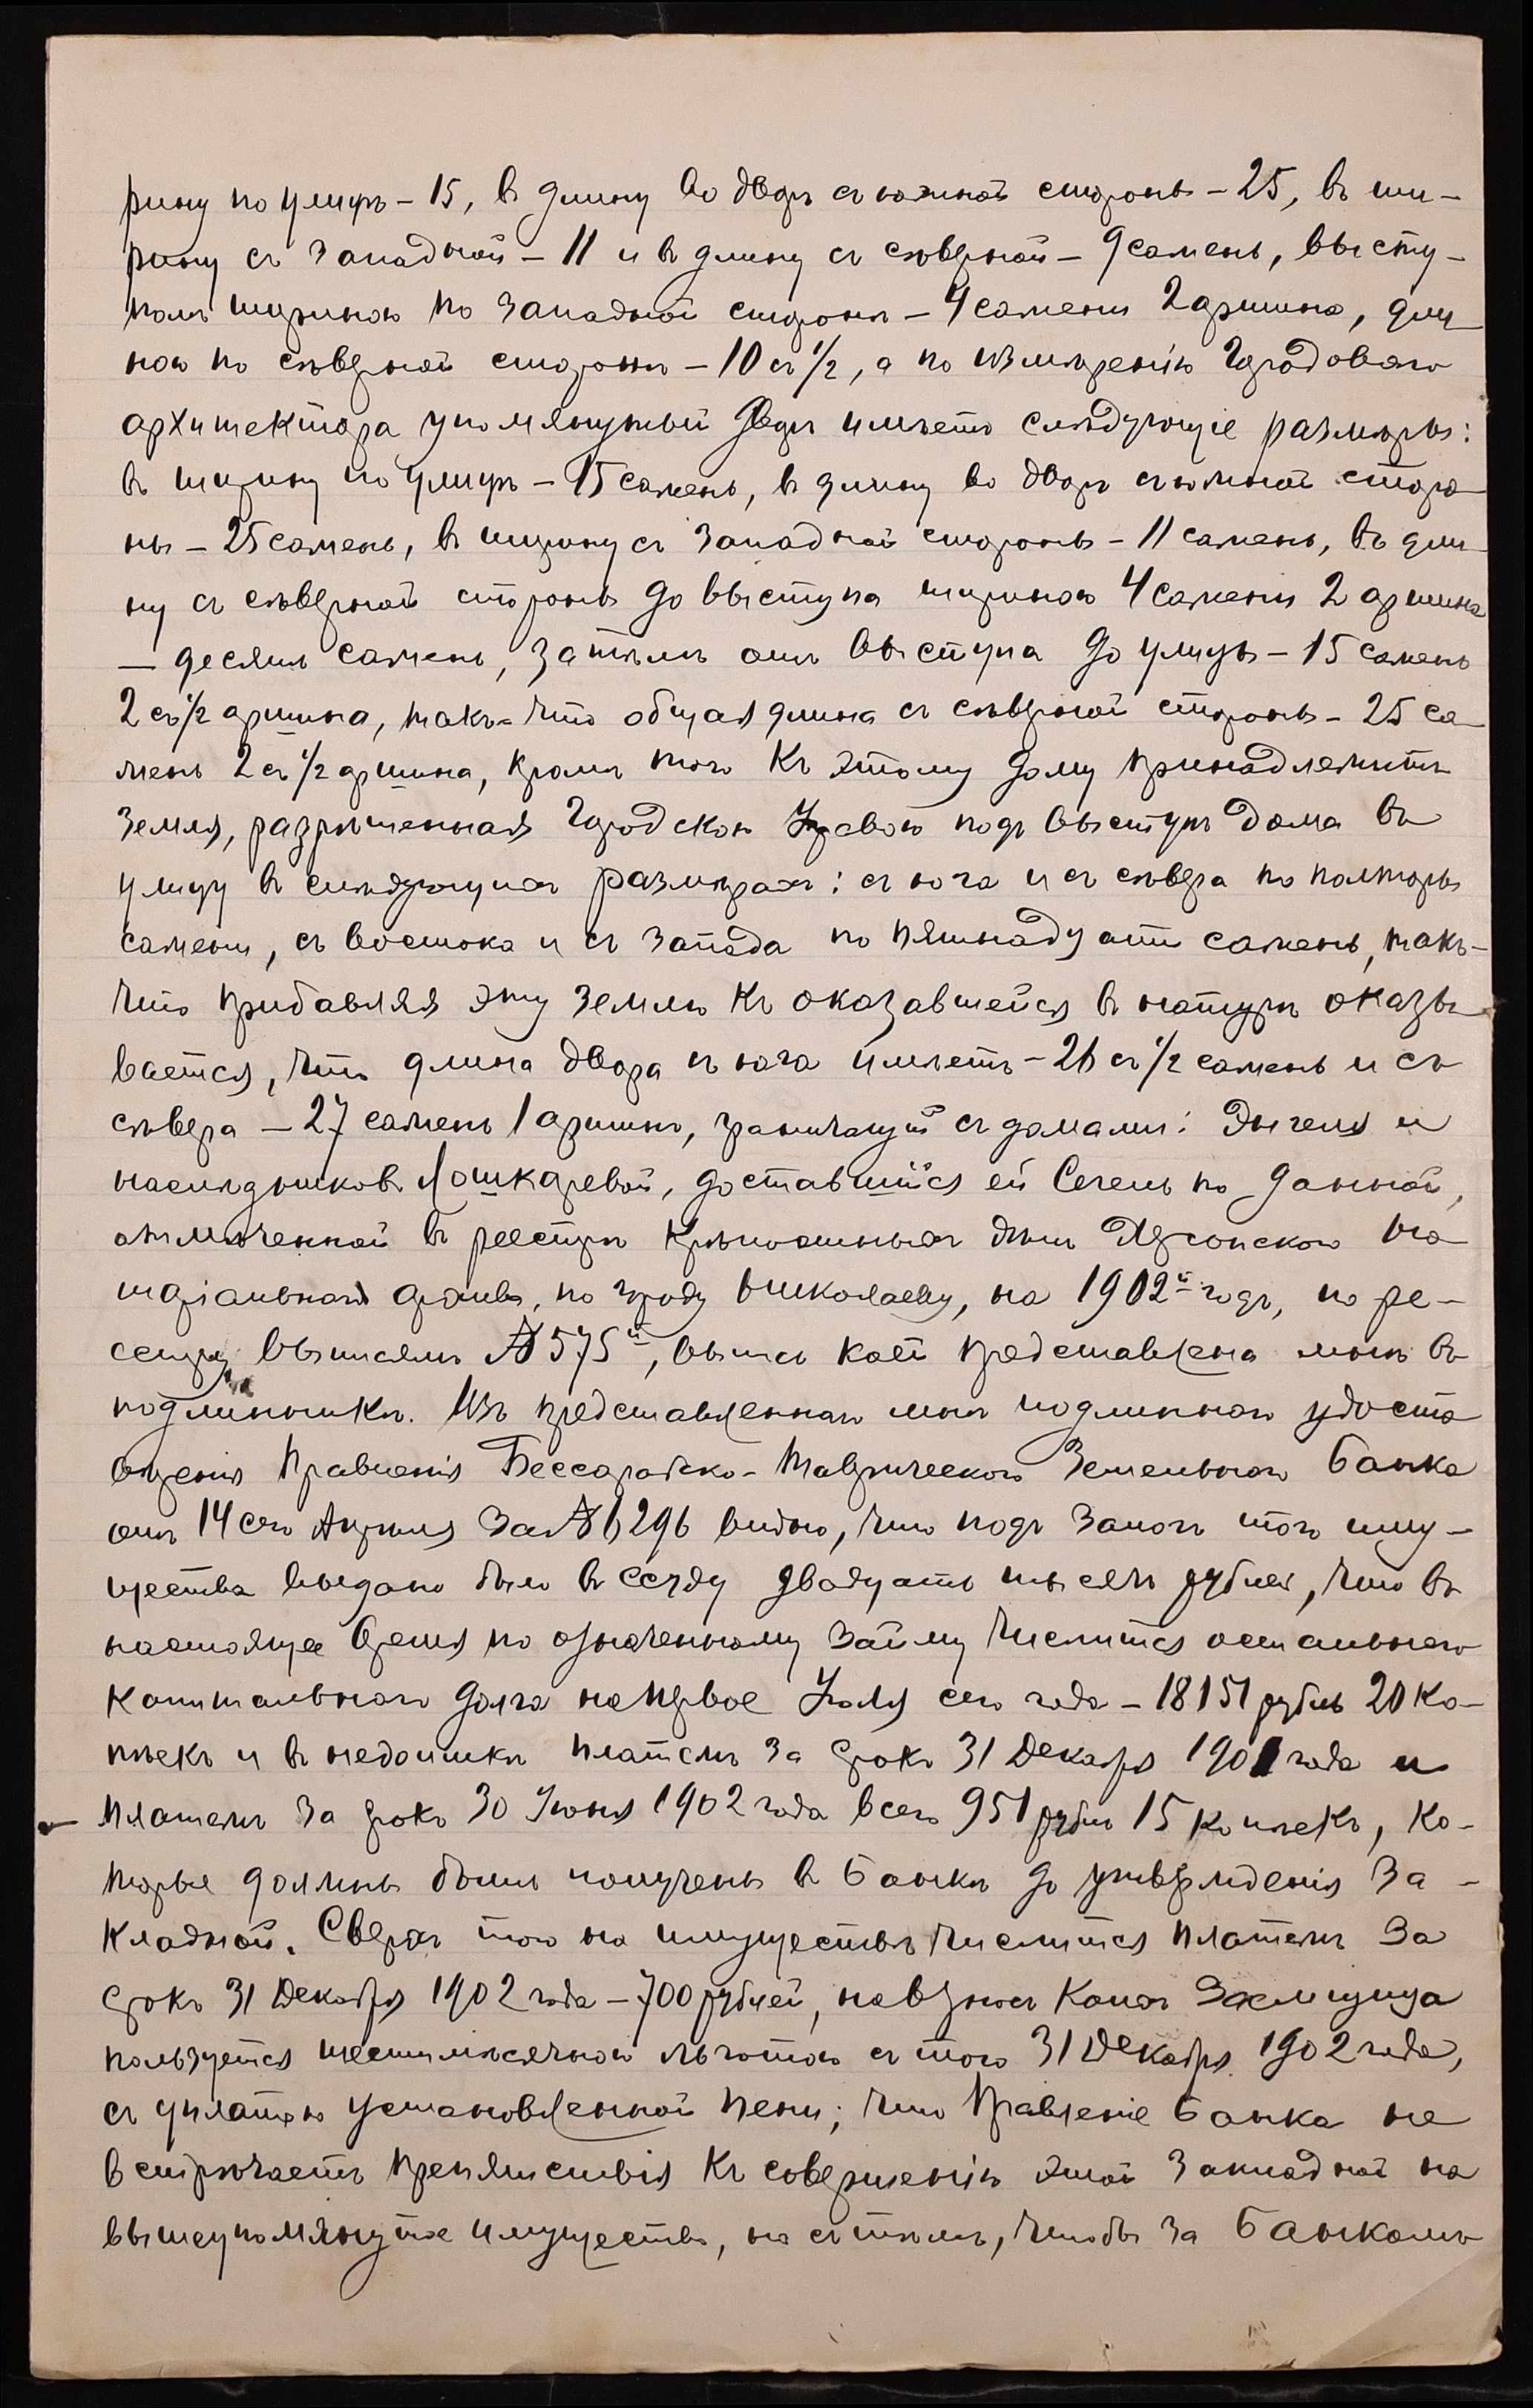 рину по улицѣ – 15, въ длину во дворъ съ южной стороны – 25, въ ши-
рину съ западной – 11 и въ длину съ сѣверной – 9 сажень, высту-
помъ шириною по западной сторонѣ – 4 сажени 2 аршина, дли-
ною по сѣверной сторонѣ – 10 съ ½, а по измѣренію Городоваго
архитектора упомянутый дворъ имѣетъ слѣдующіе размѣры:
въ ширину по улицѣ – 15 сажень, въ длину во дворъ съ южной сторо-
ны – 25 сажень, въ ширину съ западной стороны – 11 сажень, въ дли-
ну съ сѣверной стороны до выступа шириною 4 сажени 2 аршина
– десять сажень, затѣмъ отъ выступа до улицы – 15 сажень
2 съ ½ аршина, такъ-что общая длина съ сѣверной стороны – 25 са-
жень 2 съ ½ аршина, кромѣ того къ этому дому принадлежитъ
земля, разрѣшенная Городскою Управою подъ выступъ дома въ
улицу въ слѣдующихъ размѣрахъ: съ юга и съ сѣвера по полторы
сажени, съ востока и съ запада по пятнадцати сажень, такъ-
что прибавляя эту землю къ оказавшейся въ натурѣ оказы-
вается, что длина двора съ юга имѣетъ – 26 съ ½ сажень и съ
сѣвера – 27 сажень 1 аршинъ, граничащій съ домами: и
наслѣдниковъ Лошкаревой, доставшійся ей по данной,
отмѣченной въ реестрѣ крѣпостныхъ дѣлъ Херсонскаго Но-
таріальнаго архива, по городу Николаеву, на 1902й годъ, по ре-
естру выписямъ № 575й, выпись коей представлена мнѣ въ
подлинникѣ. Изъ представленнаго мнѣ подлиннаго удосто-
вѣренія Правленія Бессарабско-Таврическаго Земельнаго Банка
отъ 14 сего Апрѣля за № 6296 видно, что подъ залогъ того иму-
щества выдано было въ ссуду двадцать тысячъ рублей, что въ
настоящее время по означенному займу числится остальнаго
капитальнаго долга на первое Іюля сего года – 18151 рубль 20 ко-
пѣекъ и въ недоимкѣ платежъ за срокъ 31 Декабря 1901 года и
платежъ за срокъ 30 Іюня 1902 года всего 951 рубль 15 копѣекъ, ко-
торые должны быть получены въ Банкѣ до утвержденія за-
кладной. Сверхъ того на имуществѣ числится платежъ за
срокъ 31 Декабря 1902 года – 700 рублей, на взносъ коихъ Заемщица
пользуется шестимѣсячною льготою съ того 31 Декабря 1902 года,
съ уплатою установленной пени; что Правленіе Банка не
встрѣчаетъ препятствія къ совершенію этой закладной на
вышеупомянутое имущество, но съ тѣмъ, чтобы за Банкомъ